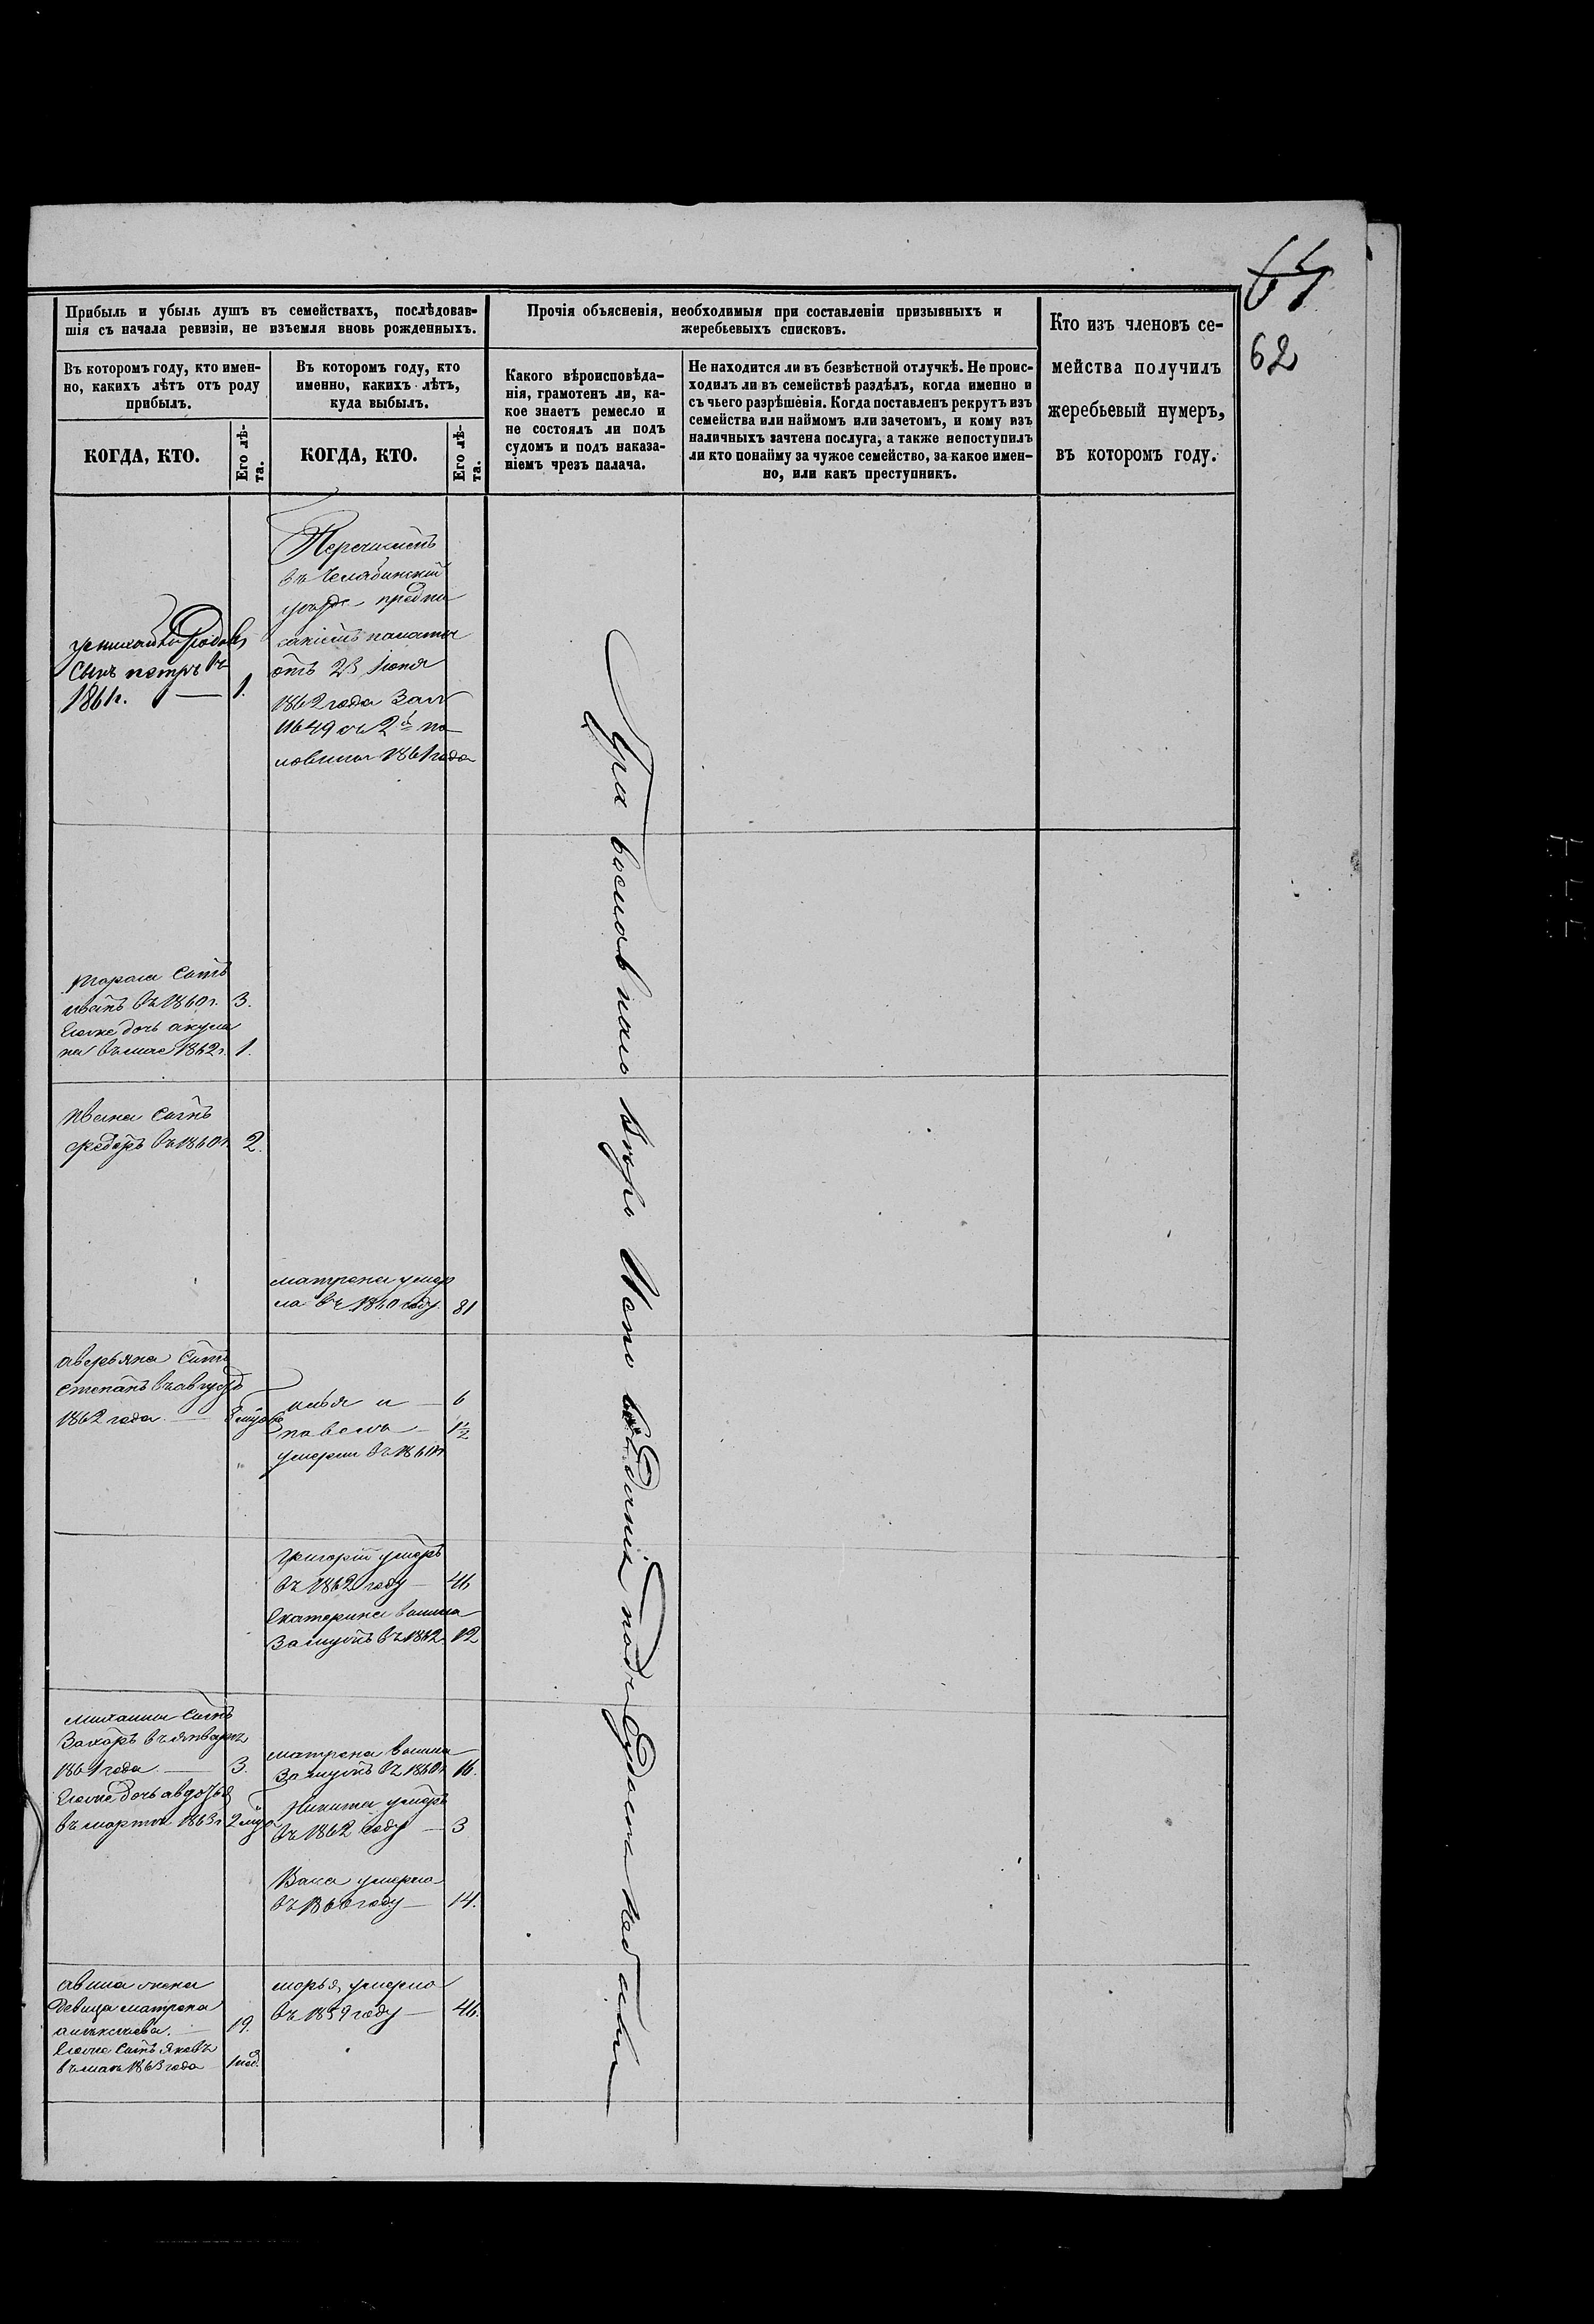 62
Прибыль и убыль душъ въ семействахъ, послѣдовав-
шія съ начала ревизіи, не изъемля вновь рожденныхъ.
Въ которомъ году, кто имен-
но, какихъ лѣтъ отъ роду
прибылъ.
КОГДА, КТО.
Его лѣ-
та.
Въ которомъ году, кто
именно, какихъ лѣтъ,
куда выбылъ.
КОГДА, КТО.
Его лѣ-
та.
Прочія объясненія, необходимыя при составленіи призывныхъ и
жеребьевыхъ списковъ.
Какого вѣроисповѣда-
нія, грамотенъ ли, ка-
кое знаетъ ремесло и
не состоялъ ли подъ
судомъ и подъ наказа-
ніемъ чрезъ палача.
Не находится ли въ безвѣстной отлучкѣ. Не проис-
ходилъ ли въ семействѣ раздѣлъ, когда именно и
съ чьего разрѣшенія. Когда поставленъ рекрутъ изъ
семейства или наймомъ или зачетомъ, и кому изъ
наличныхъ зачтена послуга, а также непоступилъ
ли кто понайму за чужое семейство, за какое имен-
но, или какъ преступникъ.
Кто изъ членовъ се-
мейства получилъ
жеребьевый нумеръ,
въ которомъ году.
сынъ петръ въ
1861г. — 1.
въ Челябинскій
предпи
палаты
отъ 23 Іюня
1862 года за №
11649 съ 2й по
ловины 1861 года
сынъ
иванъ въ 1860г. 3.
дочь акули
на въ мае 1862г. 1.
Ивана сынъ
федоръ въ 1860г. 2.
матрена умер
ла въ 1860 году. 81
аверьяна сынъ
степанъ въ августѣ
1862 года —
илья и — 6
павелъ — 1½
умерли въ
григорій умеръ
въ 1862 году — 46
Екатерина вышла
замужъ въ 1862. 12
сынъ
Захаръ въ январѣ
1861 года — 3.
дочь авдотья
въ марте 1863г.
матрена вышла
замужъ въ 1860г. 16.
Никита умеръ
въ 1862 году — 3
умерла
въ 1860 году — 14.
жена
девица матрена
19.
сынъ яковъ
1863 года
марья умерла
въ 1859 году — 46.
Православнаго вѣро
подъ судомъ не были